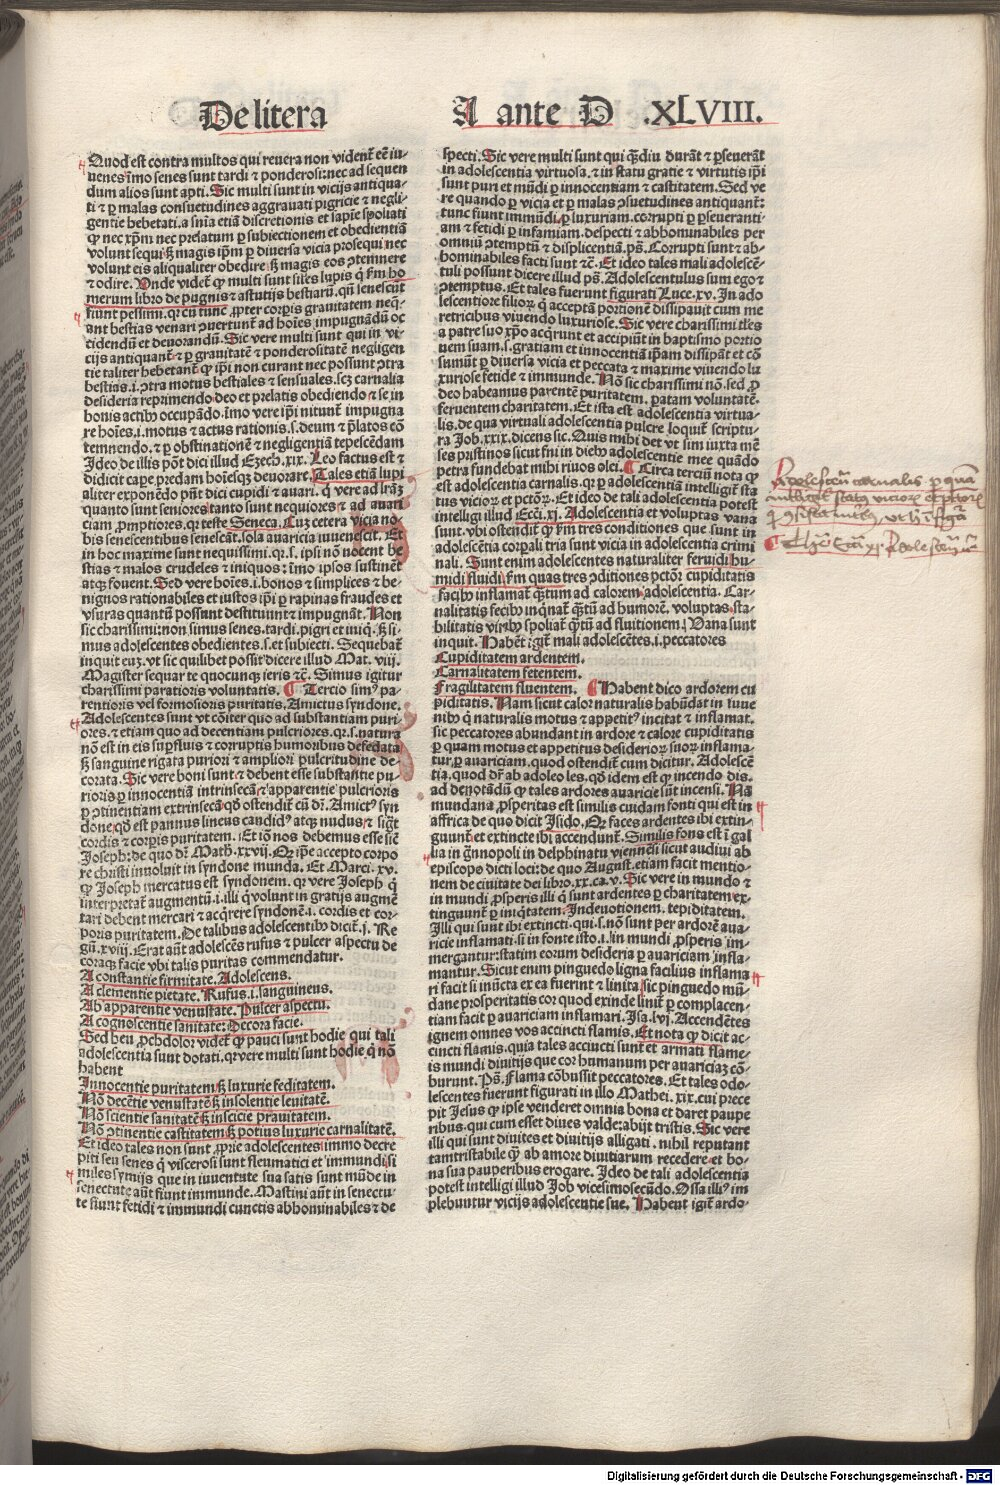 De litera
A ante D .XLVIII.
Quod est contra multos qui revera non vidẽt᷑ eẽ iu-
uenes ĩmo senes sunt tardi ⁊ ponderosi: nec ad sequen
dum alios sunt apti. Sic multi sunt in vicijs antiqua-
ti ⁊ ꝑ malas consuetudines aggrauati pigricie ⁊ negli-
gentie hebetati. a sñia etiã discretionis ⁊ sapiẽ spoliati
ꝙ nec xp̃m nec prelatum ꝑ subiectionem ⁊ obedientiã
volunt sequi ſꝫ magis ip̃m ꝑ diuersa vicia prosequi nec
volunt eis aliqualiter obedire ſꝫ magis eos ↄtemnere
⁊ odire. Unde videt᷑ ꝙ multi sunt siles lupis q̇ ẜm ho
merum libro de pugnis ⁊ astutijs bestiarũ. qñ senescũt
fiunt pessimi. qꝛ cũ tunc ꝓpter corꝑis grauitatem neq̃-
ant bestias venari ↄuertunt᷑ ad hoĩes impugnãdũ oc
cidendũ et deuorandũ. Sic vere multi sunt qui in vi-
cijs antiquant᷑ ⁊ ꝑ grauitatẽ ⁊ ponderositatẽ negligen
tie taliter hebetant᷑ ꝙ ip̃i non curant nec possunt ↄtra
bestias .i. ↄtra motus bestiales ⁊ sensuales. scꝫ carnalia
desideria reprimendo: deo et prelatis obediendo ⁊ se in
bonis actibꝰ occupãdo. ĩmo vere ip̃i nitunt᷑ impugna
re hoĩes .i. motus ⁊ actus rationis .s. deum ⁊ p̃latos eõ
temnendo. ⁊ ꝑ obstinationẽ ⁊ negligentiã tepescẽdam
Ideo de illis põt dici illud Ezech. xix. Leo factus est ⁊
didicit capere p̃redam hoĩesqꝫ deuorare. Tales etiã lupi
aliter exponẽdo pñt dici cupidi ⁊ auari. q̇ vere ad lr̃aꝫ
quanto sunt seniores tanto sunt nequiores ⁊ ad auari
ciam ꝓmptiores. qꝛ teste Seneca. Cuꝫ cetera vicia no-
bis senescentibus senescãt. sola auaricia iuuenescit. Et
in hoc maxime sunt nequissimi. qꝛ .s. ipsi nõ nocent be
stias ⁊ malos crudeles ⁊ iniquos: ĩmo ipsos sustinẽt
atqꝫ fouent. Sed vere hoĩes .i. bonos ⁊ simplices ⁊ be-
nignos rationabiles et iustos ip̃i ꝑ rapinas fraudes et
vsuras quantũ possunt destituunt ⁊ impugnãt. Non
sic charissimi: non simus senes. tardi. pigri et iniq̇. ſꝫ si-
mus adolescentes obedientes .s. et subiecti. Sequebat᷑
inquit euꝫ. vt sic quilibet possit dicere illud Mat. viij.
Magister sequar te quocunqꝫ ieris ⁊c̃. Simus igitur
charissimi paratioris voluntatis. ¶ Tercio simꝰ pa-
rentioris vel formosioris puritatis. Amictus syndone.
Adolescentes sunt vt cõiter quo ad substantiam puri-
ores. ⁊ etiam quo ad decentiam pulcriores. qꝛ .s. natura
nõ est in eis suꝑfluis ⁊ corruptis humoribus defedata
ſꝫ sanguine rigata puriori ⁊ ampliori pulcritudine de-
corata. Sic vere boni sunt ⁊ debent esse substantie pu-
rioris ꝑ innocentiã intrinsecã ⁊ apparentie pulcrioris
ꝑ ↄtinentiam extrinsecã qð ostendit᷑ cũ dr̃. Amictꝰ syn
done. qð est pannus lineus candidꝰ atqꝫ nudus ⁊ sig̃t
cordis ⁊ corꝑis puritatem. Et iõ nos debemus esse sic̃
Joseph: de quo dr̃ Math. xxvij. Qꝛ ip̃e accepto corpo
re christi inuoluit in syndone munda. Et Marci. xv.
ꝙ Joseph mercatus est syndonem. qꝛ vere Joseph q̇
interpretat᷑ augmentũ .i. illi q̇ volunt in gratijs augmẽ
tari debent mercari ⁊ acq̇rere syndonẽ .i. cordis et cor-
poris puritatem. De talibus adolescentibꝰ dicit᷑ .j. Re
gũ. xviij. Erat aũt adolescẽs rufus ⁊ pulcer aspectu de
coraqꝫ facie vbi talis puritas commendatur.
A constantie firmitate. Adolescens.
A clementie pietate. Rufus .i. sanguinens.
Ab apparentie venustate. Pulcer aspectu.
A cognoscentie sanitate: Decora facie.
Sed heu ꝓchdolor videt᷑ ꝙ pauci sunt hodie qui tali
adolescentia sunt dotati. qꝛ vere multi sunt hodie q̇ nõ
habent
Innocentie puritatem ſꝫ luxurie feditatem.
Nõ decẽtie venustatẽ ſꝫ insolentie leuitatẽ.
Nõ scientie sanitatẽ ſꝫ inscicie prauitatem.
Nõ ↄtinentie castitatem ſꝫ potius luxurie carnalitatẽ.
Et ideo tales non sunt ꝓprie adolescentes immo decre
piti seu senes q̇ viscerosi sunt fleumatici et immundi si
miles symijs que in iuuentute sua satis sunt mũde in
senectute aũt fiunt immunde. Mastini aũt in senectu-
te fiunt fetidi ⁊ immundi cunctis abhominabiles ⁊ de
specti. Sic vere multi sunt qui q̃diu durãt ⁊ ꝑseuerãt
in adolescentia virtuosa. ⁊ in statu gratie ⁊ virtutis ip̃i
sunt puri et mũdi ꝑ innocentiam ⁊ castitatem. Sed ve
re quando ꝑ vicia et ꝑ malas ↄsuetudines antiquant᷑:
tunc fiunt immũdi ꝑ luxuriam. corrupti ꝑ ꝑseueranti-
am ⁊ fetidi ꝑ infamiam. despecti ⁊ abhominabiles per
omniũ ↄtemptũ ⁊ displicentiã. ps̃. Corrupti sunt ⁊ ab-
hominabiles facti sunt ⁊c̃. Et ideo tales mali adolescẽ-
tuli possunt dicere illud ps̃. Adolescentulus sum ego ⁊
ↄtemptus. Et tales fuerunt figurati Luce. xv. In ado
lescentiore filioꝝ q̇ acceptã portionẽ dissipauit cum me
retricibus viuendo luxuriose. Sic vere charissimi tles
a patre suo xp̃o acq̇runt et accipiũt in baptismo portio
nem suam .s. gratiam et innocentiã ip̃am dissipãt et cõ
sumũt ꝑ diuersa vicia et peccata ⁊ maxime viuendo lu
xuriose fetide ⁊ immunde. Nõ sic charissimi nõ. sed ꝓ
deo habeamus parentẽ puritatem. ꝑatam voluntatẽ.
feruentem charitatem. Et ista est adolescentia virtua-
lis. de qua virtuali adolescentia pulcre loquit᷑ scriptu-
ra Job. xxix. dicens sic. Quis mihi det vt sim iuxta mẽ
ses pristinos sicut fui in diebꝰ adolescentie mee quãdo
petra fundebat mihi riuos olei. ¶ Circa terciũ nota ꝙ
est adolescentia carnalis. qꝛ ꝑ adolescentiã intelligit᷑ sta
tus vicioꝝ et pctõꝝ. Et ideo de tali adolescentia potest
intelligi illud Ecci. xi. Adolescentia et voluptas vana
sunt. vbi ostendit᷑ ꝙ ẜm tres conditiones que sunt in
adolescentia corꝑali tria sunt vicia in adolescentia crimi
nali. Sunt enim adolescentes naturaliter feruidi hu-
midi fluidi ẜm quas tres ↄditiones pctõꝝ cupiditatis
facibꝰ inflamat᷑ q̃tum ad calorem adolescentia. Car-
nalitatis fecibꝰ inq̇nat᷑ q̃tũ ad humorẽ. voluptas sta-
bilitatis viribꝰ spoliat᷑ q̃tũ ad fluitionem. Vana sunt
inquit. Habẽt igit᷑ mali adolescẽtes .i. peccatores
Cupiditatem ardentem.
Carnalitatem fetentem.
Fragilitatem fluentem. ¶ Habent dico ardorem cu
piditatis. Nam sicut calor naturalis habũdat in iuue
nibꝰ q̇ naturalis motus ⁊ appetitꝰ incitat ⁊ inflamat.
sic peccatores abundant in ardore ⁊ calore cupiditatis
ꝑ quam motus et appetitus desiderioꝝ suoꝝ inflama-
tur. ꝑ auariciam. quod ostendit᷑ cum dicitur. Adolescẽ
tia. quod dr̃ ab adoleo les. qð idem est ꝙ incendo dis.
ad denotãdũ ꝙ tales ardores auaricie sũt incensi. Nã
mundana ꝓsperitas est similis cuidam fonti qui est in
affrica de quo dicit Jsido. Qꝛ faces ardentes ibi extin-
guunt᷑ et extincte ibi accendunt᷑. Similis fons est ĩ gal
lia in g̃nnopoli in delphinatu viennẽsi sicut audiui ab
episcopo dicti loci: de quo August. etiam facit mentio-
nem de ciuitate dei libro. xx. ca. v. Sic vere in mundo ⁊
in mundi ꝓsperis illi q̇ sunt ardentes ꝑ charitatem ex-
tinguunt᷑ ꝑ iniq̇tatem. Indeuotionem. tepiditatem.
Illi qui sunt ibi extincti. qui .s. nõ sunt ꝑer ardorẽ aua-
ricie inflamati. si in fonte isto .i. in mundi ꝓsperis im-
mergantur: statim eorum desideria ꝑ auariciam infla-
mantur. Sicut enim pinguedo ligna facilius inflama
ri facit si inũcta ex ea fuerint ⁊ linita. sic pinguedo mũ-
dane prosperitatis cor quod exinde linit᷑ ꝑ complacen-
tiam facit ꝑ auariciam inflamari. Isa. lvi. Accendẽtes
ignem omnes vos accincti flamis. Et nota ꝙ dicit ac-
cincti flamis. quia tales acciucti sunt et armati flame-
is mundi diuitijs que cor humanum per auariciaꝫ cõ-
burunt. Ps̃. Flama cõbussit peccatores. Et tales odo-
lescentes fuerunt figurati in illo Mathei. xix. cui prece
pit Jesus ꝙ ipse venderet omnia bona et daret paupe
ribus. qui cum esset diues valde: abijt tristis. Sic vere
illi qui sunt diuites et diuitijs alligati. nihil reputant
tamtristabile ꝙ ab amore diuitiarum recedere et bo-
na sua pauperibus erogare. Ideo de tali adolescentia
potest intelligi illud Job vicesimosecũdo. Ossa illiꝰ im
plebuntur vicijs adolescentie sue. Habent igit᷑ ardo-
Adolescẽtia carnalis ꝑ quã
intelligit᷑ statꝰ vicioꝝ et pctõꝝ
Digitalisierung gefördert durch die Deutsche Forschungsgemeinschaft - DFG